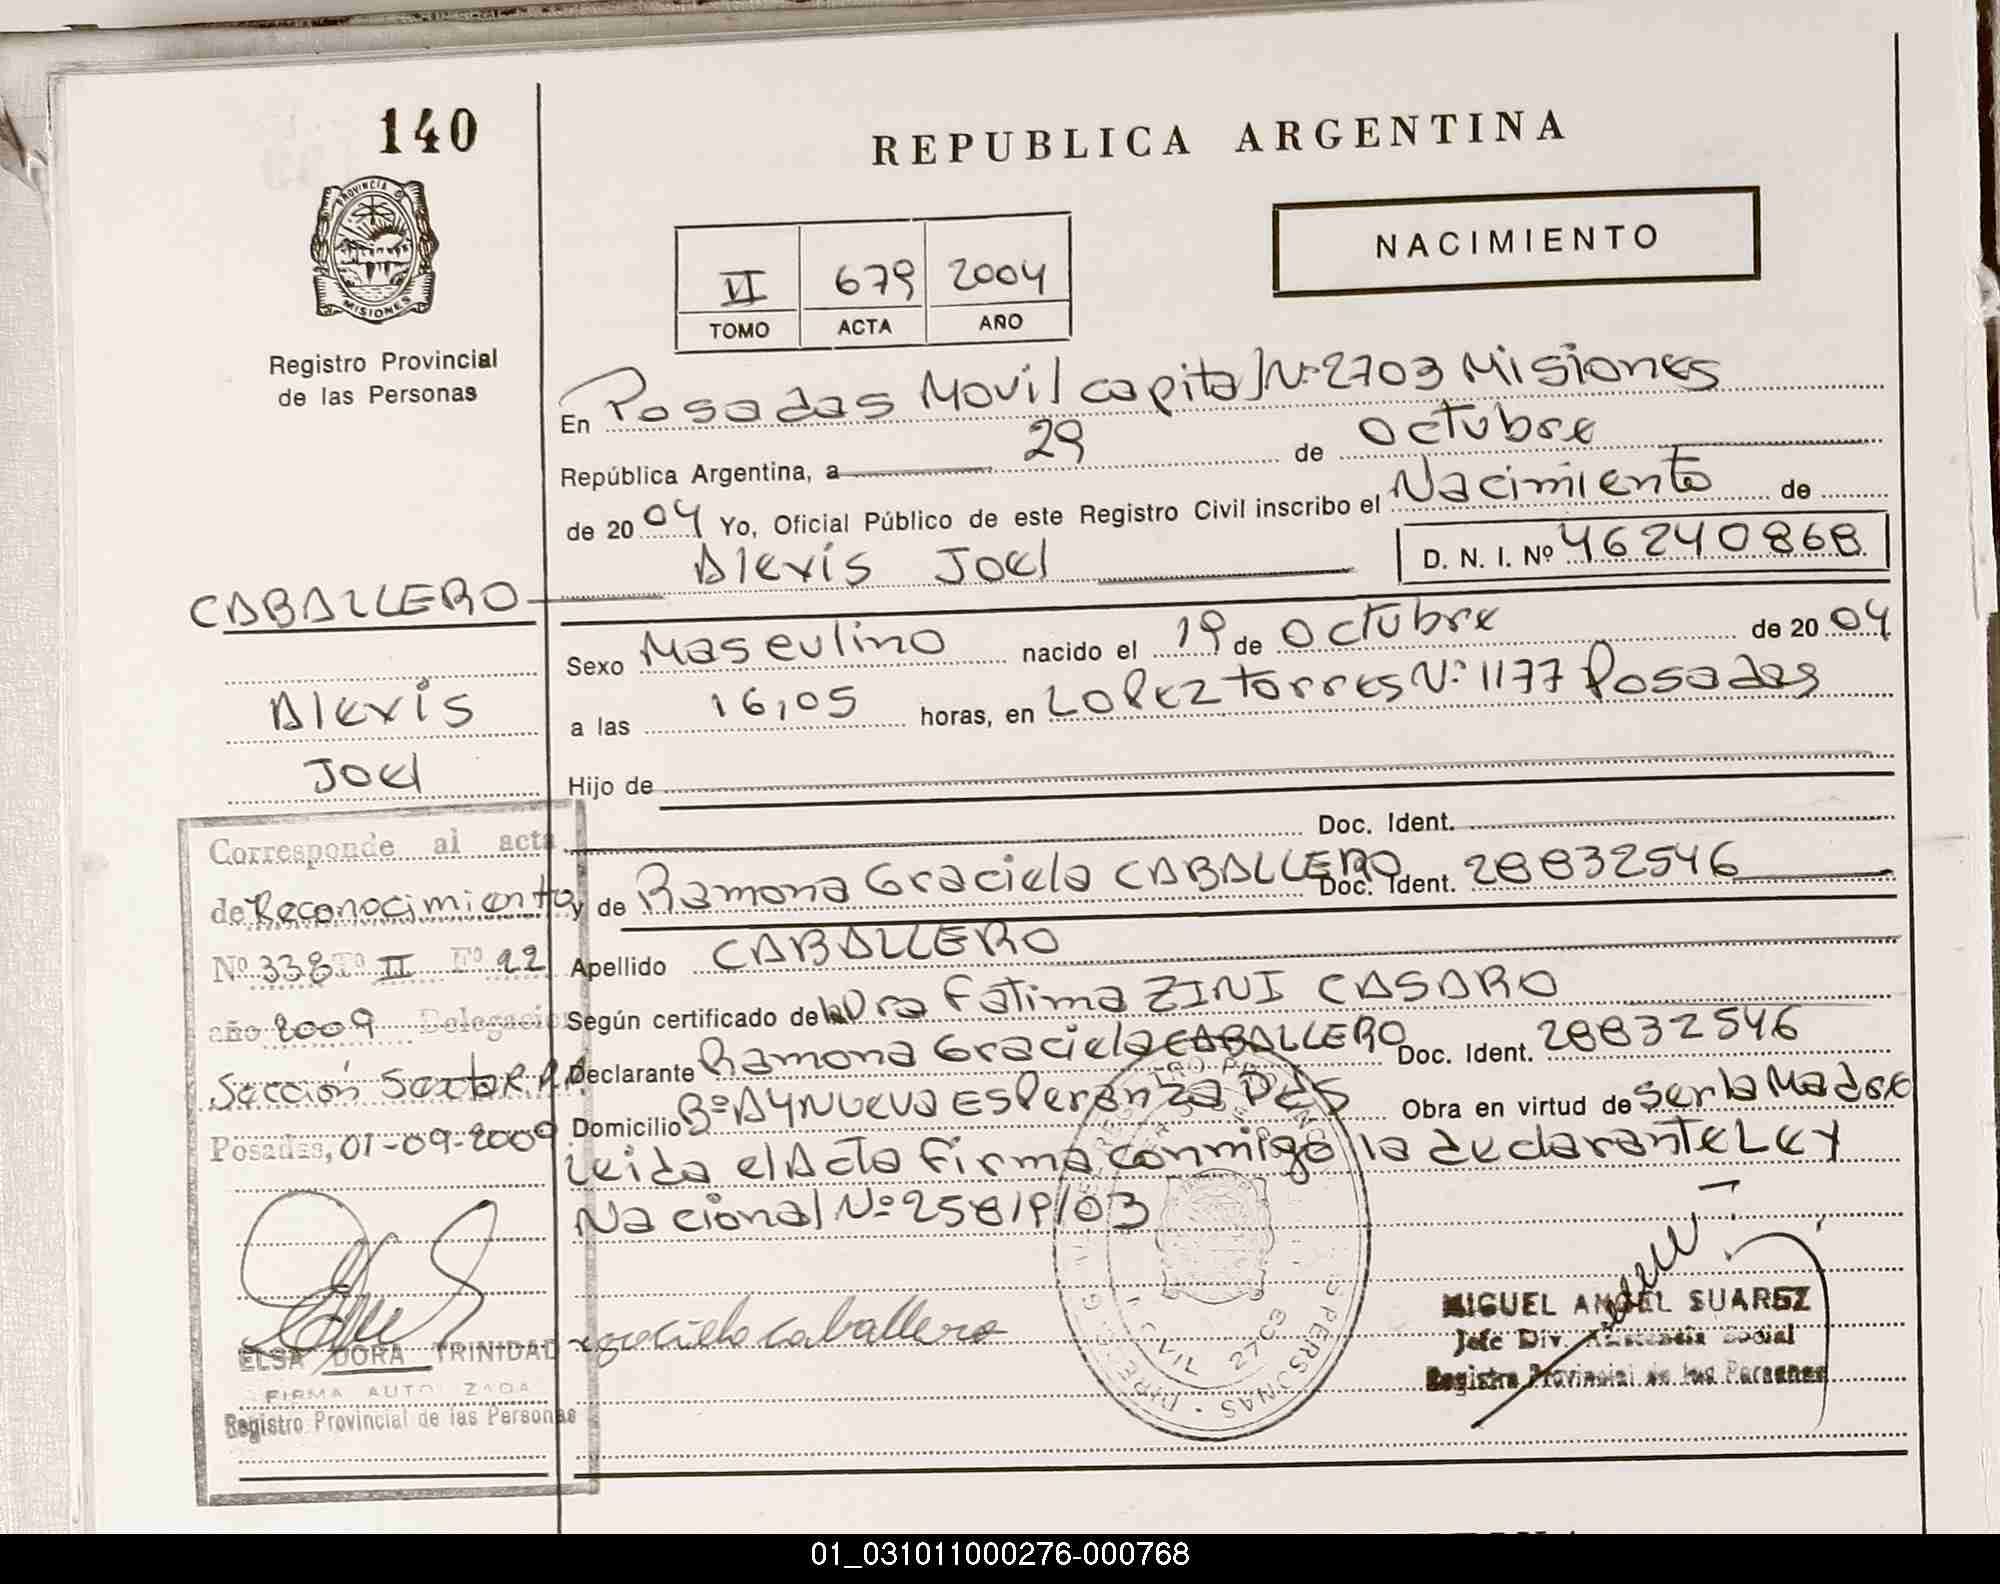 140
REPUBLICA ARGENTINA
NACIMIENTO
PROVINCIA DE
MISIONES
Registro Provincial
de las Personas
VI 679 2004
TOMO ACTA AÑO
En Posadas Movil capital Nº 2703 Misiones
República Argentina, a 29 de octubre
de 2004 Yo, Oficial Público de este Registro Civil inscribo el Nacimiento de
Alexis Joel D. N. I. Nº 46240868
CABALLERO
Alexis
Joel
Sexo Masculino nacido el 19 de octubre de 2004
a las 16,05 horas, en LOPEZ torres Nº 1177 Posadas
Hijo de
Doc. Ident.
y de Ramona Graciela CABALLERO Doc. Ident. 28832546
Apellido CABALLERO
Según certificado de la Dra Fatima ZINI CASARO
Declarante Ramona Graciela CABALLERO Doc. Ident. 28832546
Domicilio Bº A4 Nueva Esperanza Pdas Obra en virtud de ser la Madre
Leida el Acta firma conmigo la declarante LEY
Nacional Nº 25819/03
Corresponde al acta
de Reconocimiento
Nº 338 Tº II Fº 22
año 2009 Delegación
Sección Sexta R.P.
Posadas, 01-09-2009
ELSA DORA TRINIDAD
FIRMA AUTORIZADA
Registro Provincial de las Personas
graciela caballero
2703
MIGUEL ANGEL SUAREZ
Jefe Div. Asistencia Social
Registro Provincial de las Personas
01_031011000276-000768